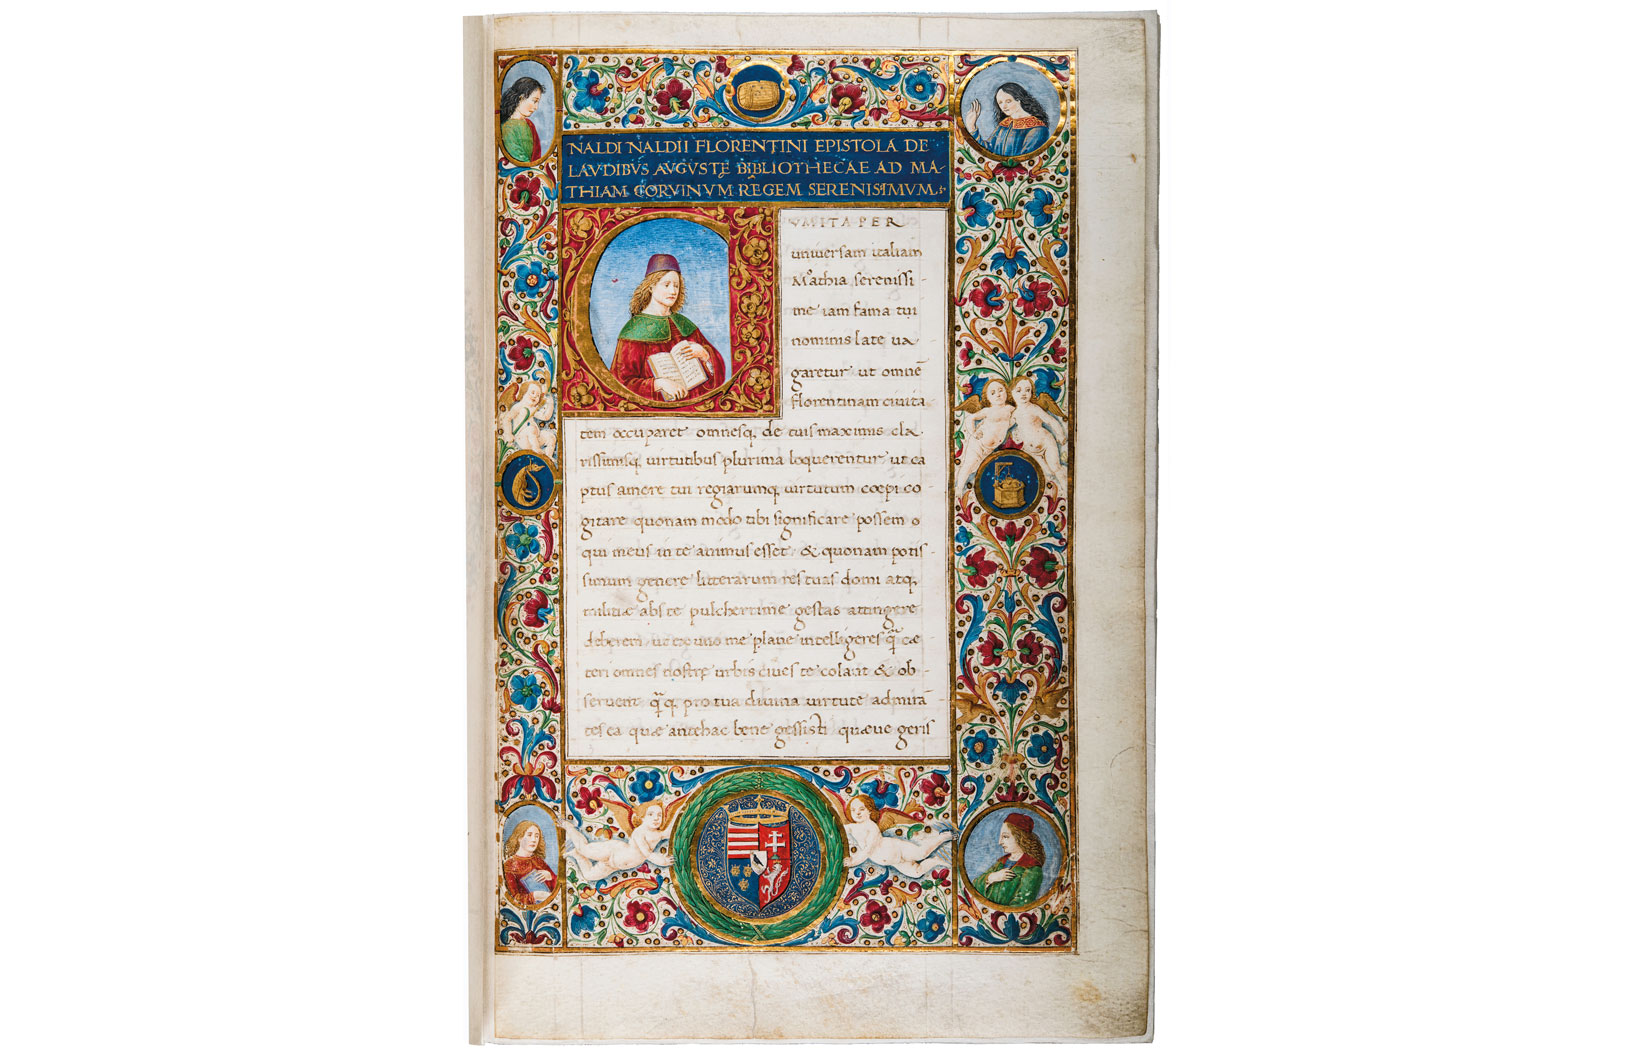 NALDI NALDII FLORENTINI EPISTOLA DE
LAVDIBVS AVGVSTĘ BIBLIOTHECAE AD MA-
THIAM CORVINVM REGEM SERENISIMVM.
VM ITA PER
uniuersam italiam
Mathia serenissi-
me iam fama tui
nominis late ua
garetur ut omnē
florentinam ciuita
tem occuparet omnesq, de tuis maximis cla-
rissimisq, uirtutibus plurima loquerentur ut ca
ptus amore tui regiarumq, uirtutum coepi co-
gitare quonam modo tibi significare possem o
qui meus in te animus esset & quonam potis-
simum genere litterarum res tuas domi atq,
militiae abs te pulcherrime gestas attingere
deberem ut ex uno me plane intelligeres q̄ cae
teri omnes nostrę urbis ciues te colant & ob-
seruent q̄q, pro tua diuina uirtute admirā
tes ea quae antehac bene gessisti quaeue geris